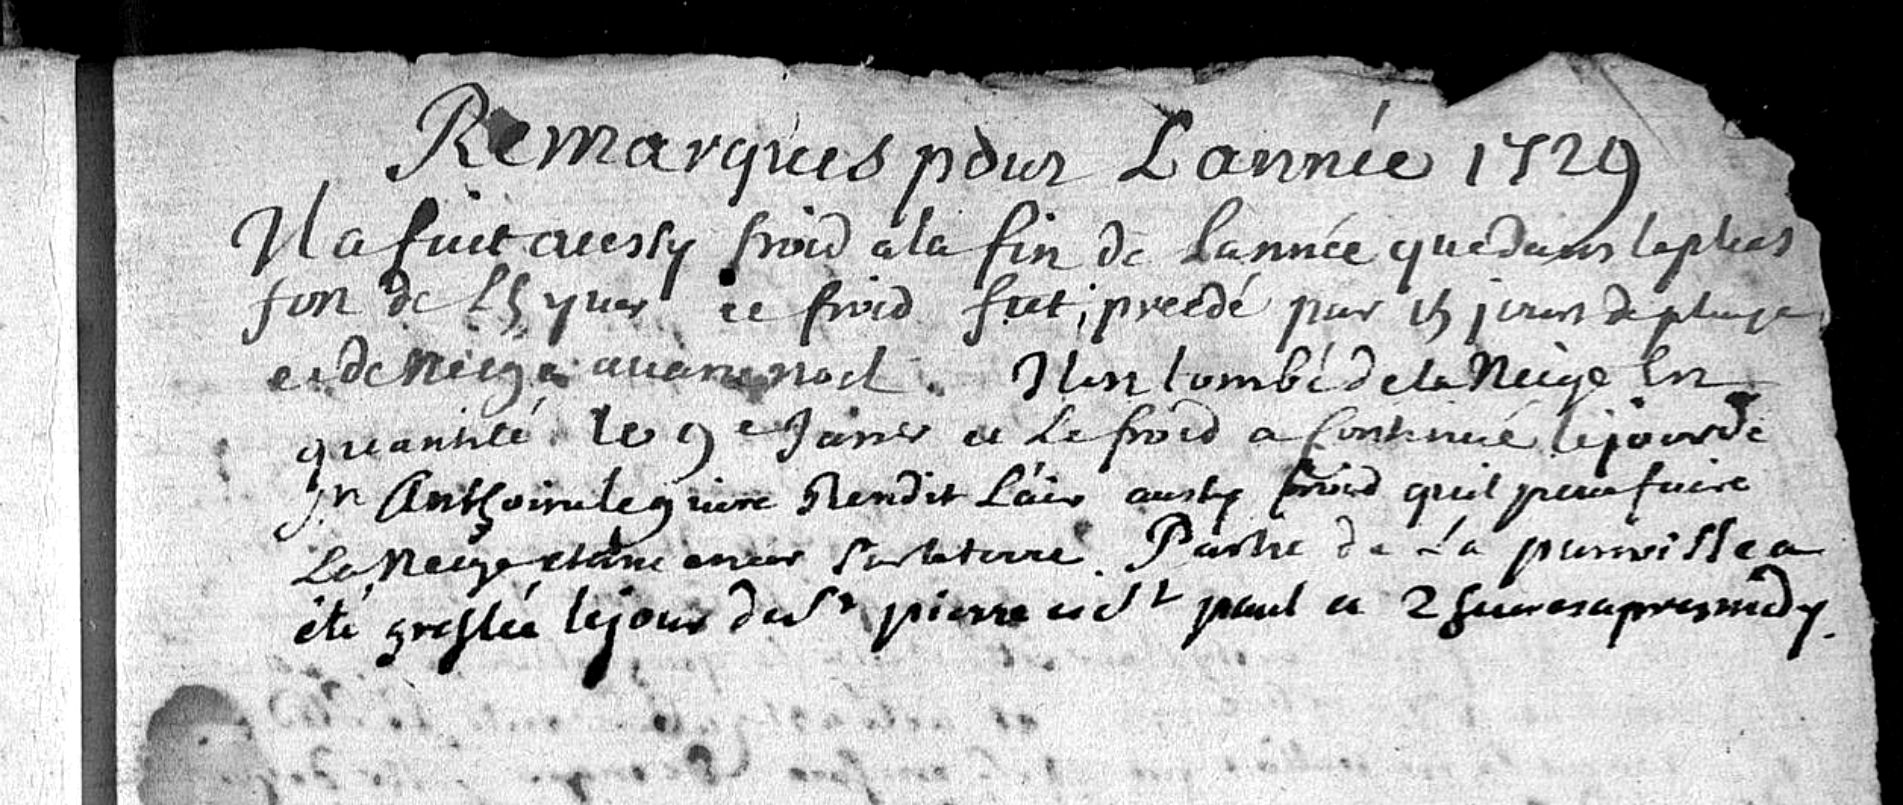 Remarques pour Lannée 1729
Il a fait aussy froid a la fin de Lannée que dans le plus
fort de Lhyver ce froid fut precedé par 15 jours de pluye
et de Neige avant noel. Il en tombé de la Neige En
quantité le 9e Janvr et Le froid a Continué le jour de
St Anthoine le givre Rendit L'air aussy froid quil peut faire
La Neige etant encor Sur la terre. Partie de La parroisse a
été greslée le jour de St pierre et St paul a 2 heures apres midy.